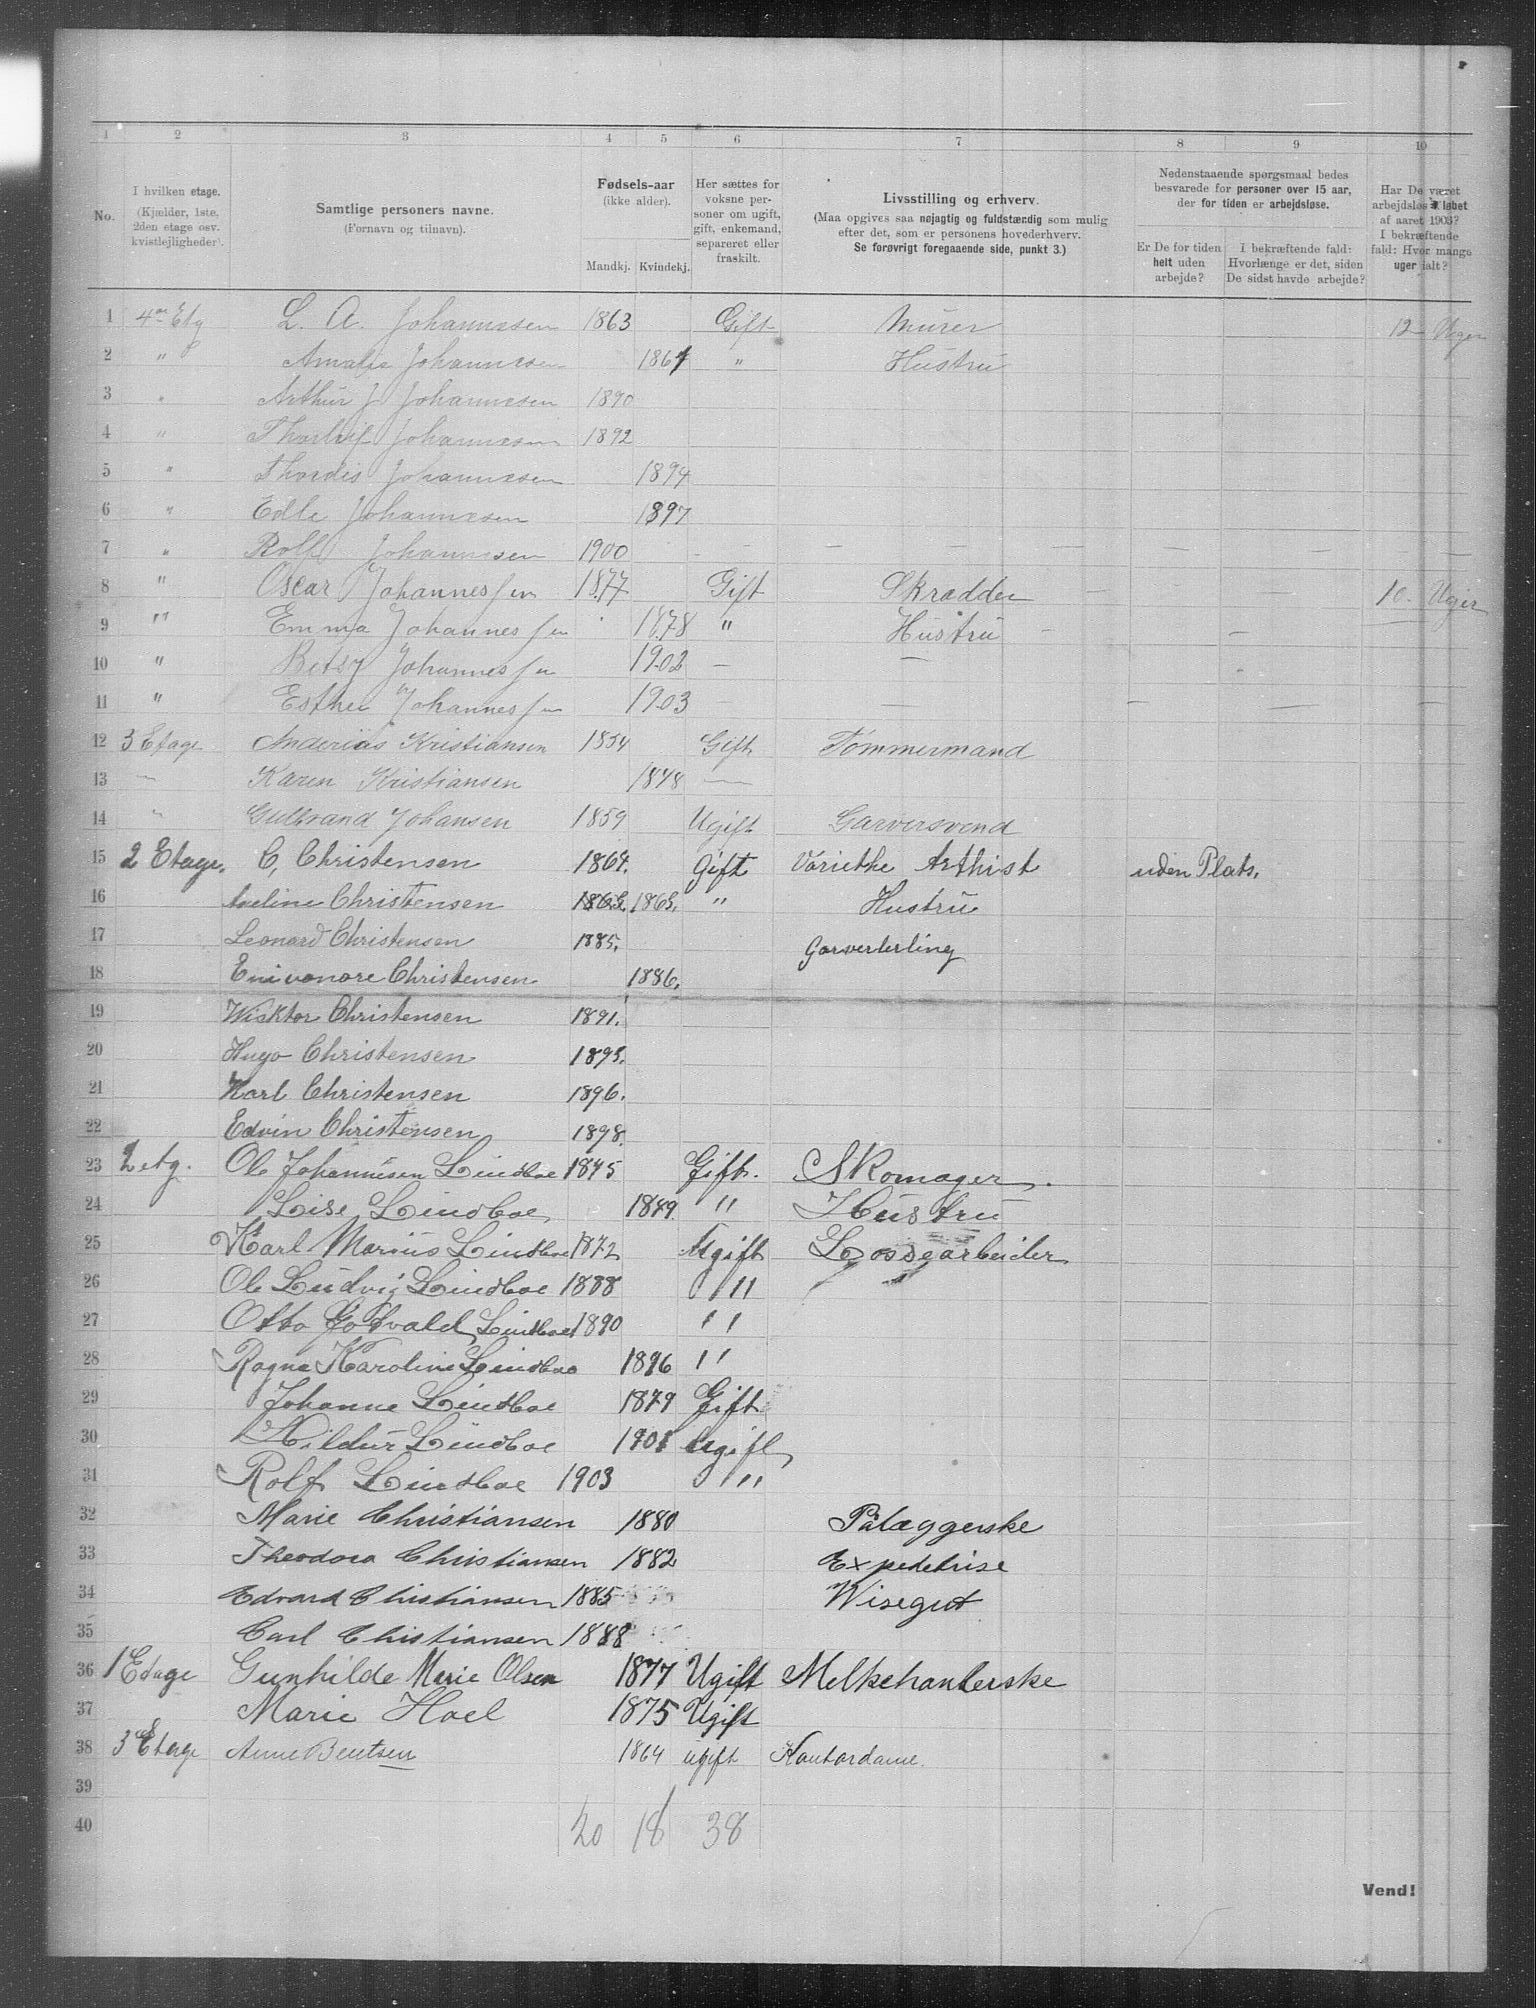 1 2 3 4 5 6 7 8 9 10
No.
I hvilken etage.
(Kjælder, 1ste, 2den etage osv. kvistlejligheder).
Samtlige personers navne.
(Fornavn og tilnavn).
Fødsels-aar
(ikke alder).
Mandkj. Kvindekj.
Her sættes for voksne personer om ugift, gift, enkemand, separeret eller fraskilt.
Livsstilling og erhverv.
(Maa opgives saa nøjagtig og fuldstændig som mulig efter det, som er personens hovederhverv.
Se forøvrigt foregaaende side, punkt 3.)
Nedenstaaende spørgsmaal bedes besvarede for personer over 15 aar, der for tiden er arbejdsløse.
Er De for tiden helt uden arbejde?
I bekræftende fald: Hvorlænge er det, siden De sidst havde arbejde?
Har De været arbejdsløs i løbet af aaret 1903? I bekræftende fald: Hvor mange uger ialt?
1 4de Etg L. A. Johannesen 1863 Gift Murer 12 Uger
2 " Amalie Johannesen 1861 " Hustru
3 " Arthur J Johannesen 1890
4 " Thorleif Johannesen 1892
5 " Thordis Johannesen 1894
6 " Edle Johannesen 1897
7 " Rolf Johannesen 1900 - - - - - - - -
8 " Oscar Johannessen 1877 Gift Skrædder - - 10. Uger
9 " Emma Johannessen 1878 " Hustru - -
10 " Betsy Johannessen 1902 - -
11 " Esther Johannessen 1903 - - - - -
12 3 Etage Anderias Kristiansen 1854 Gift Tømmermand
13 — Karen Kristiansen 1848 —
14 " Gulbrand Johansen 1859 Ugift Garversvend
15 2 Etage. C, Christensen 1864. Gift Variethe Arthist uden Plats,
16 Christensen 1865. 1865. " Hustru
17 Leonard Christensen 1885. Garverlerling
18 Christensen 1886.
19 Wisktor Christensen 1891.
20 Hugo Christensen 1895.
21 Karl Christensen 1896.
22 Edvin Christensen 1898.
23 2 etg. Ole Johannesen Lindboe 1845 Gift. Skomager.
24 Lise Lindboe, 1849. " Hustru
25 Karl Marius Lindboe 1872 Ugift Lossearbeider
26 Ole Ludvig Lindboe 1888 "
27 Otto Gotvald Lindboe 1890 "
28 Ragna Karoline Lindboe 1896 "
29 Johanne Lindboe 1879 Gift
30 Hildur Lindboe 1901 Ugift
31 Rolf Lindboe 1903 "
32 Marie Christiansen 1880 Pålæggerske
33 Theodora Christiansen 1882 Expedetrise
34 Edvard Christiansen 1885 Wisegut
35 Carl Christiansen 1888
36 1 Etage Gunhilde Marie Olsen 1877 Ugift Melkehanlerske
37 Marie Hoel 1875 Ugift
38 3 Etage Anne Bentsen 1864 ugift Kontordame.
39
40 20 18 38
Vend!